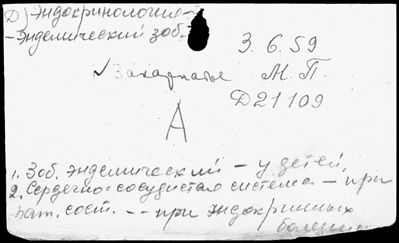 Д) Эндокринология -
- Эндемический зоб.
3. 6. 59
✓ Захарнатье М. П.
Д21109
А
1. Зоб. эндемический – у детей.
2. Сердечно-сосудистая система – при
пат. сост. -- при эндокринных
болезнях